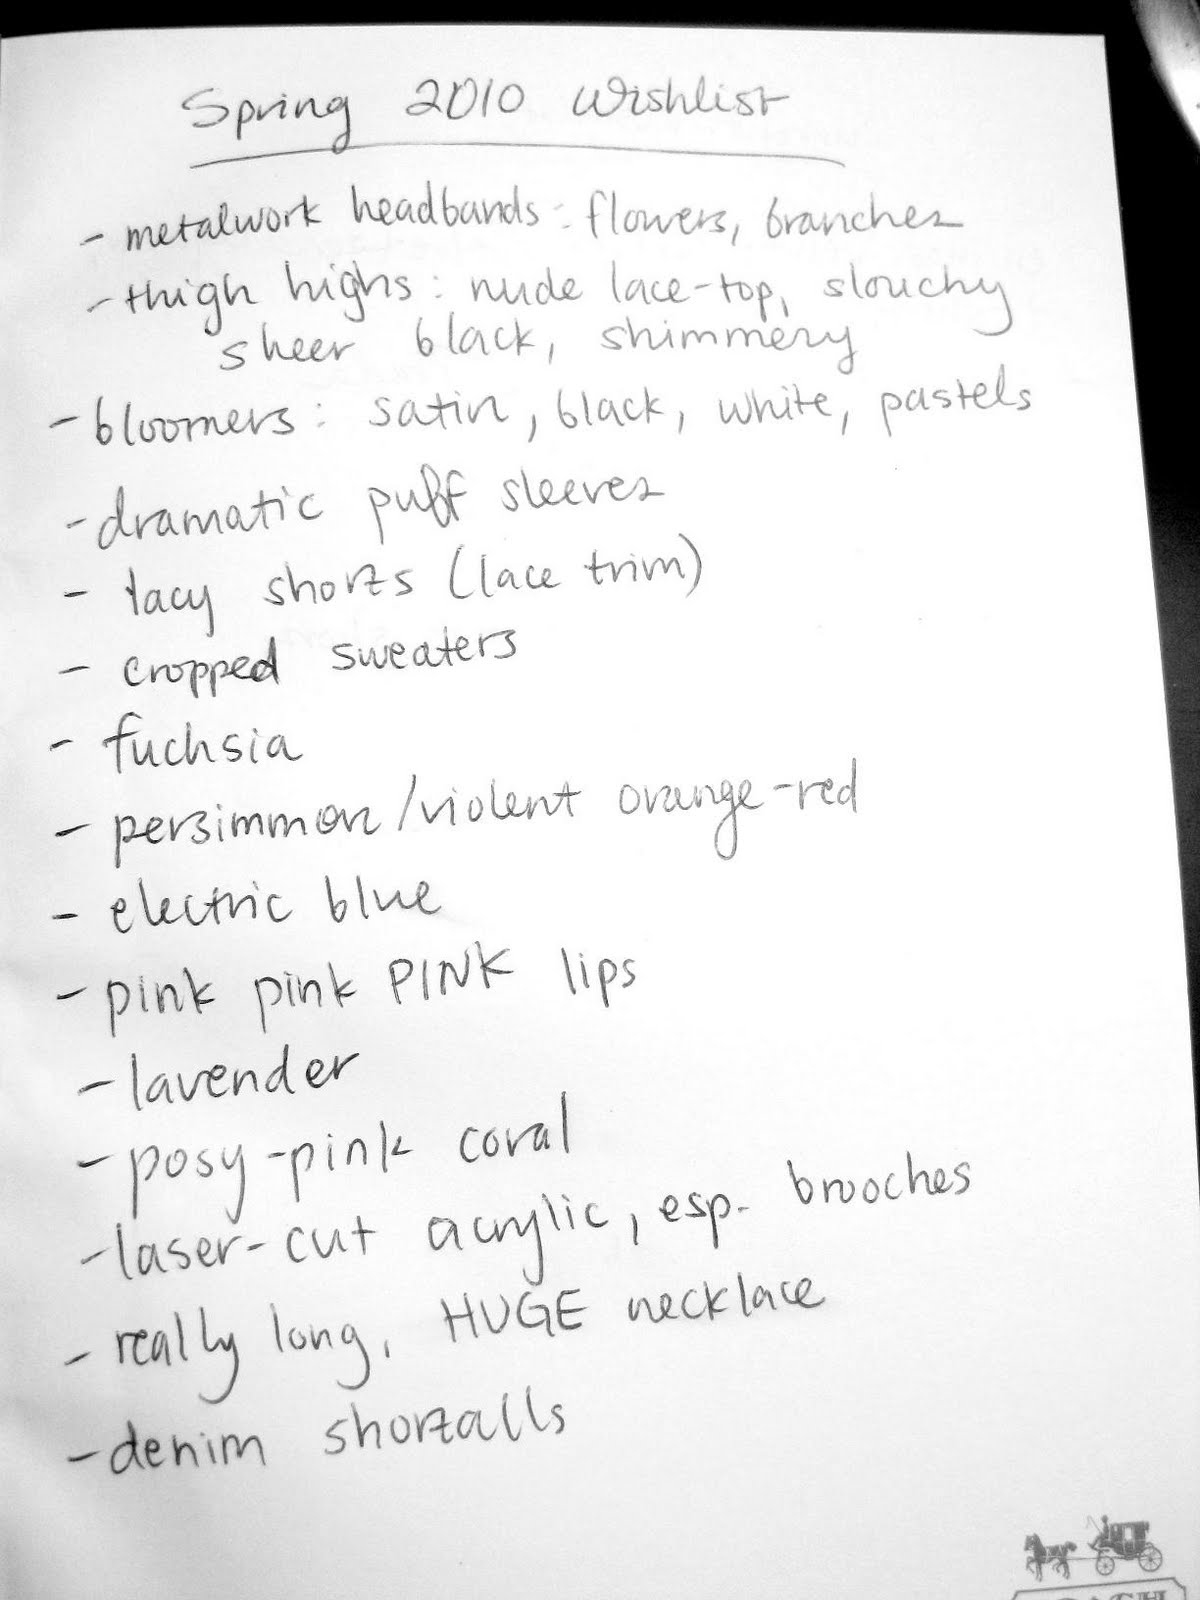 Spring 2010 Wishlist
- metalwork headbands: flowers, branches
- thigh highs: nude lace-top, slouchy
sheer black, shimmery
- bloomers: satin, black, white, pastels
- dramatic puff sleeves
- lacy shorts (lace trim)
- cropped sweaters
- fuchsia
- persimmon/violent orange-red
- electric blue
- pink pink PINK lips
- lavender
- posy-pink coral
- laser-cut acrylic, esp. brooches
- really long, HUGE necklace
- denim shortalls